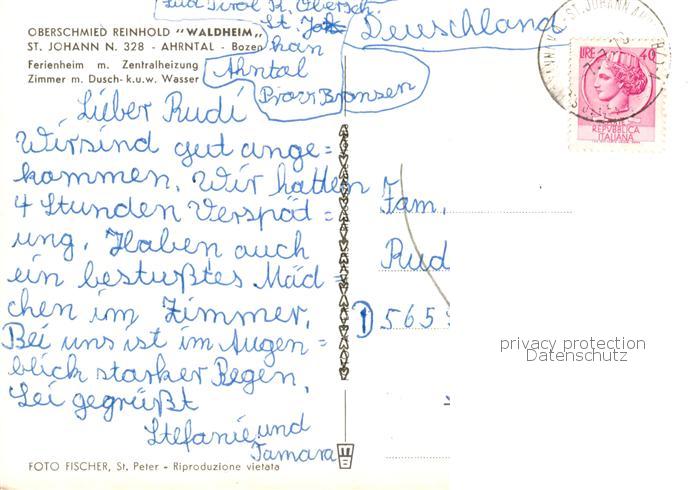 Süd Tirol R. Obersch.
St. Jo
Deuschland
OBERSCHMIED REINHOLD "WALDHEIM"
ST. JOHANN N. 328 - AHRNTAL - Bozen
han
Ferienheim m. Zentralheizung
Zimmer m. Dusch- k.u.w. Wasser
Ahntal
Prov Bronsen
LIRE 40
REPVBBLICA
ITALIANA
Lieber Rudi
Wir sind gut ange=
kommen. Wir hatten
4 Stunden Verspät=
ung. Haben auch
ein bestußtes Mäd=
chen im Zimmer.
Bei uns ist im Augen=
blick starker Regen.
Sei gegrüßt
Stefanie und
Tamara
Fam.
Rud
D 565
privacy protection
Datenschutz
FOTO FISCHER, St. Peter - Riproduzione vietata